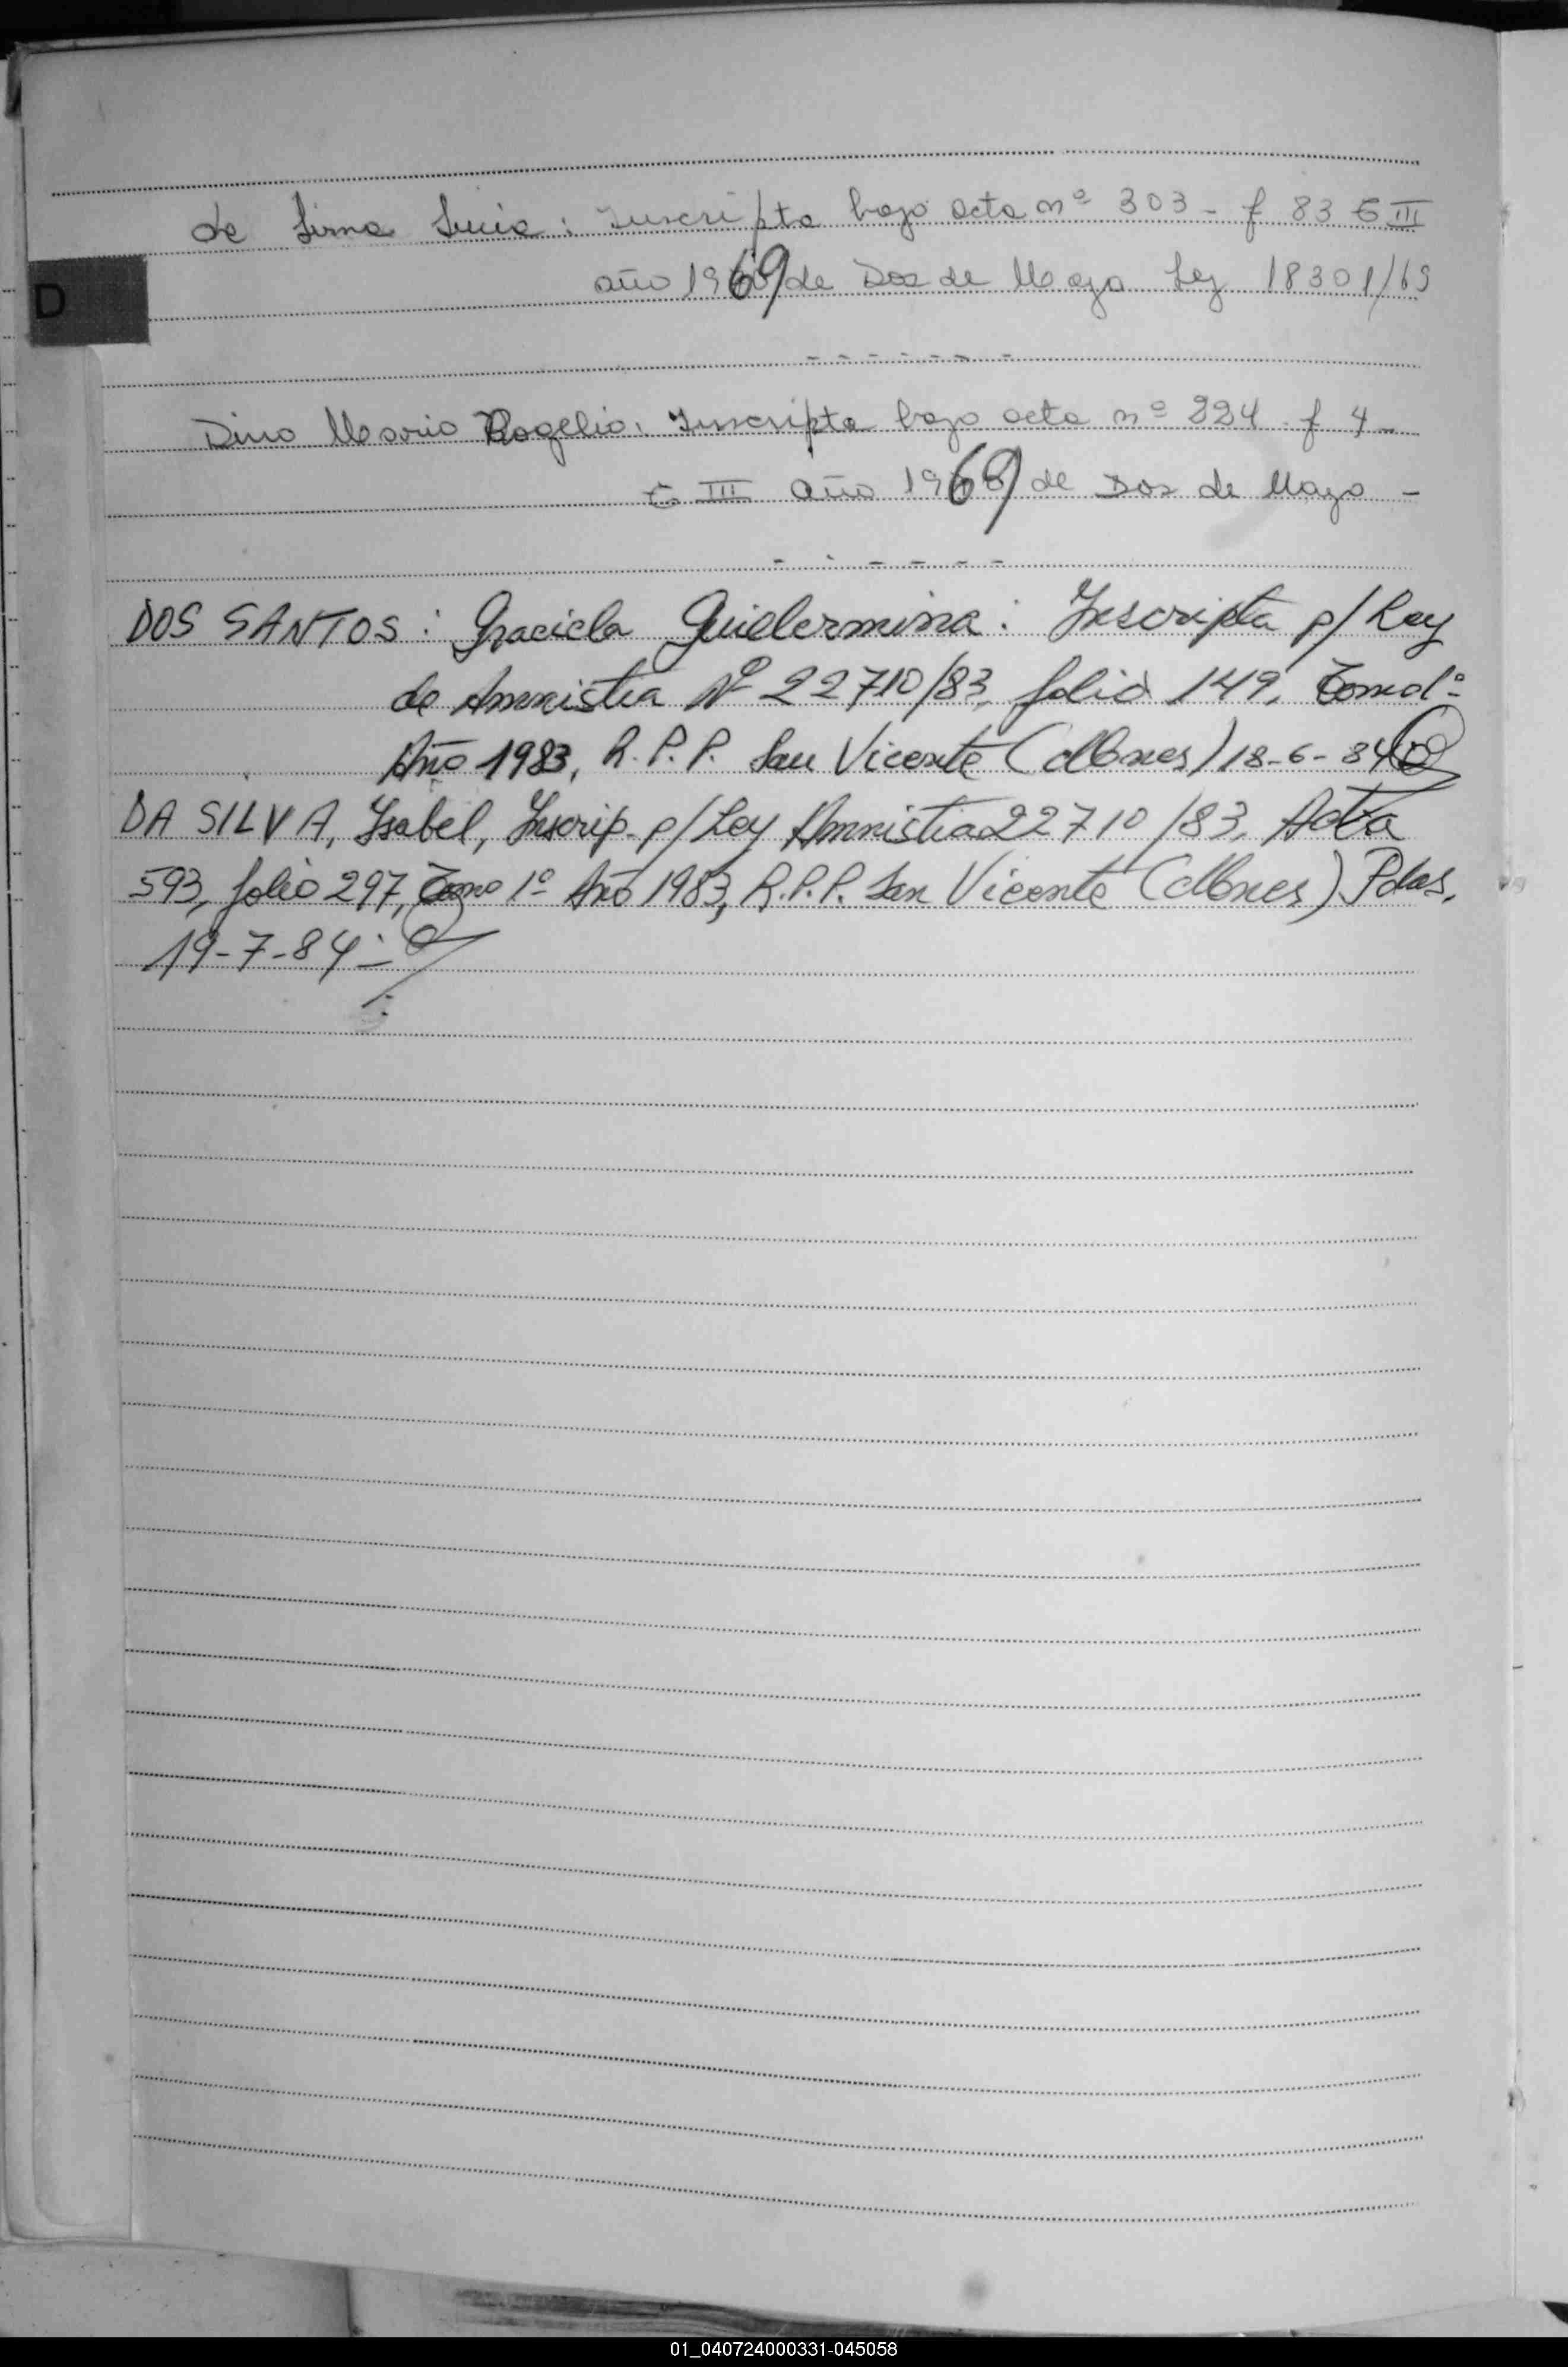 de Lima Lucia: Inscripta bajo acta nº 303 - f 83 t III
D
año 1969 de Dos de Mayo Ley 18301/69
- - - - - - -
Dino Mario Rogelio: Inscripta bajo acta nº 224 - f 4 -
t III año 1969 de Dos de Mayo -
- - - - - -
DOS SANTOS: Graciela Guillermina: Inscripta p/ Ley
de Amnistia Nº 22710/83, folio 149, Tomo 1º
Año 1983, R.P.P. San Vicente (Mnes) 18-6-84
DA SILVA, Isabel, Inscrip. p/ Ley Amnistia 22710/83, Acta
593, folio 297, Tomo 1º Año 1983, R.P.P. San Vicente (Mnes) Pdas.
19-7-84.-
01_040724000331-045058